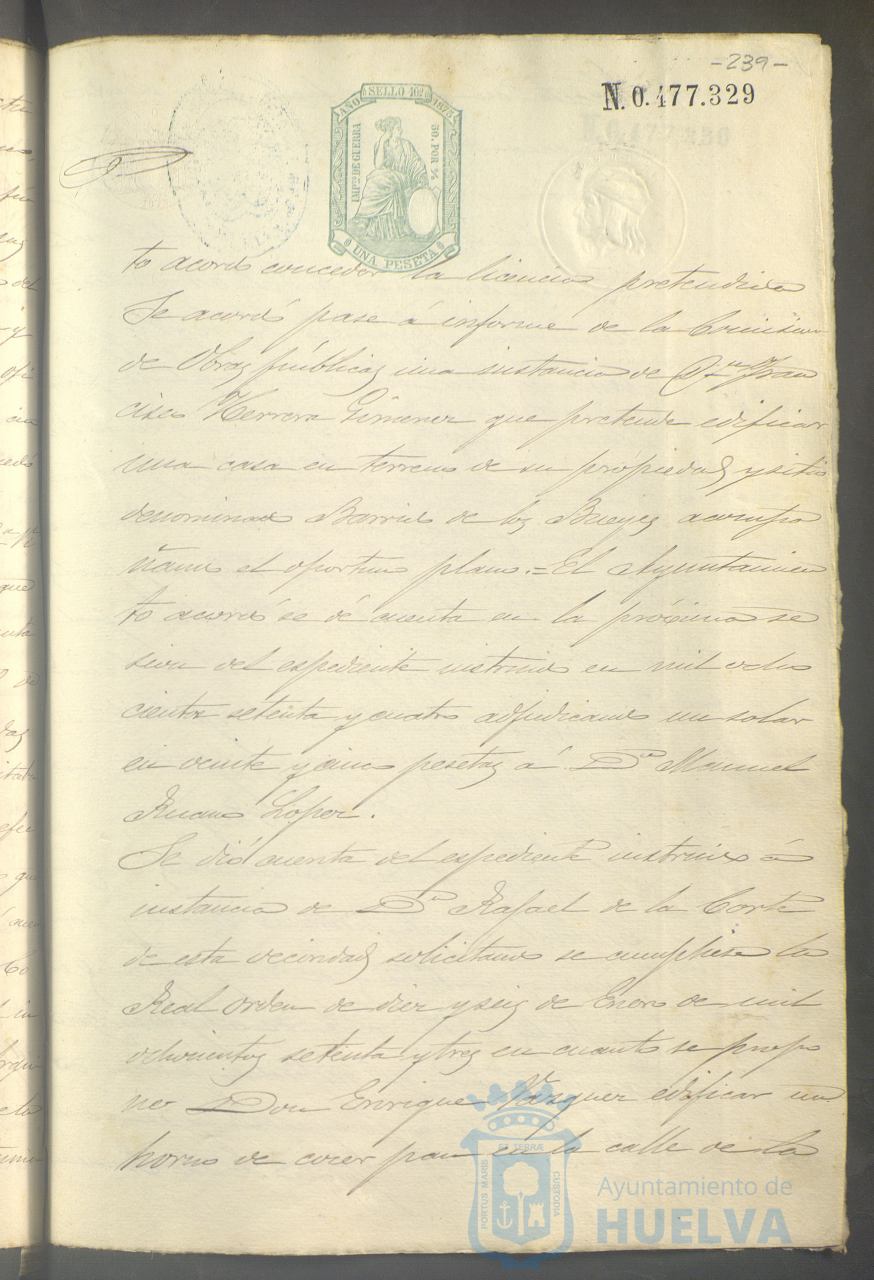 -239-
N.0.477.329
AÑO SELLO 10º 1875
IMPTO DE GUERRA
50. POR %
UNA PESETA
to acordó conceder la licencia pretendida
Se acordó pase á informe de la Comision
de Obras públicas una instancia de Dn Fran
cisco Herrera Gimenez que pretende edificar
una casa en terreno de su propiedad y sitio
denominado Barrio de los Bueyes acompa
ñando el oportuno plano.=El Ayuntamien
to acordó se dé cuenta en la próxima se
sion del espediente instruido en mil ocho
cientos setenta y cuatro adjudicando un solar
en veinte y cinco pesetas á Dn Manuel
Ruano Lopez.
Se dió cuenta del espediente instruido á
instancia de Dn Rafael de la Corte
de esta vecindad solicitando se cumpliese la
Real orden de diez y seis de Enero de mil
ochocientos setenta y tres en cuanto se propo
ne Don Enrique Vazquez edificar un
horno de cocer pan en la calle de la
PORTUS MARIS
ET TERRÆ
CUSTODIA
Ayuntamiento de
HUELVA